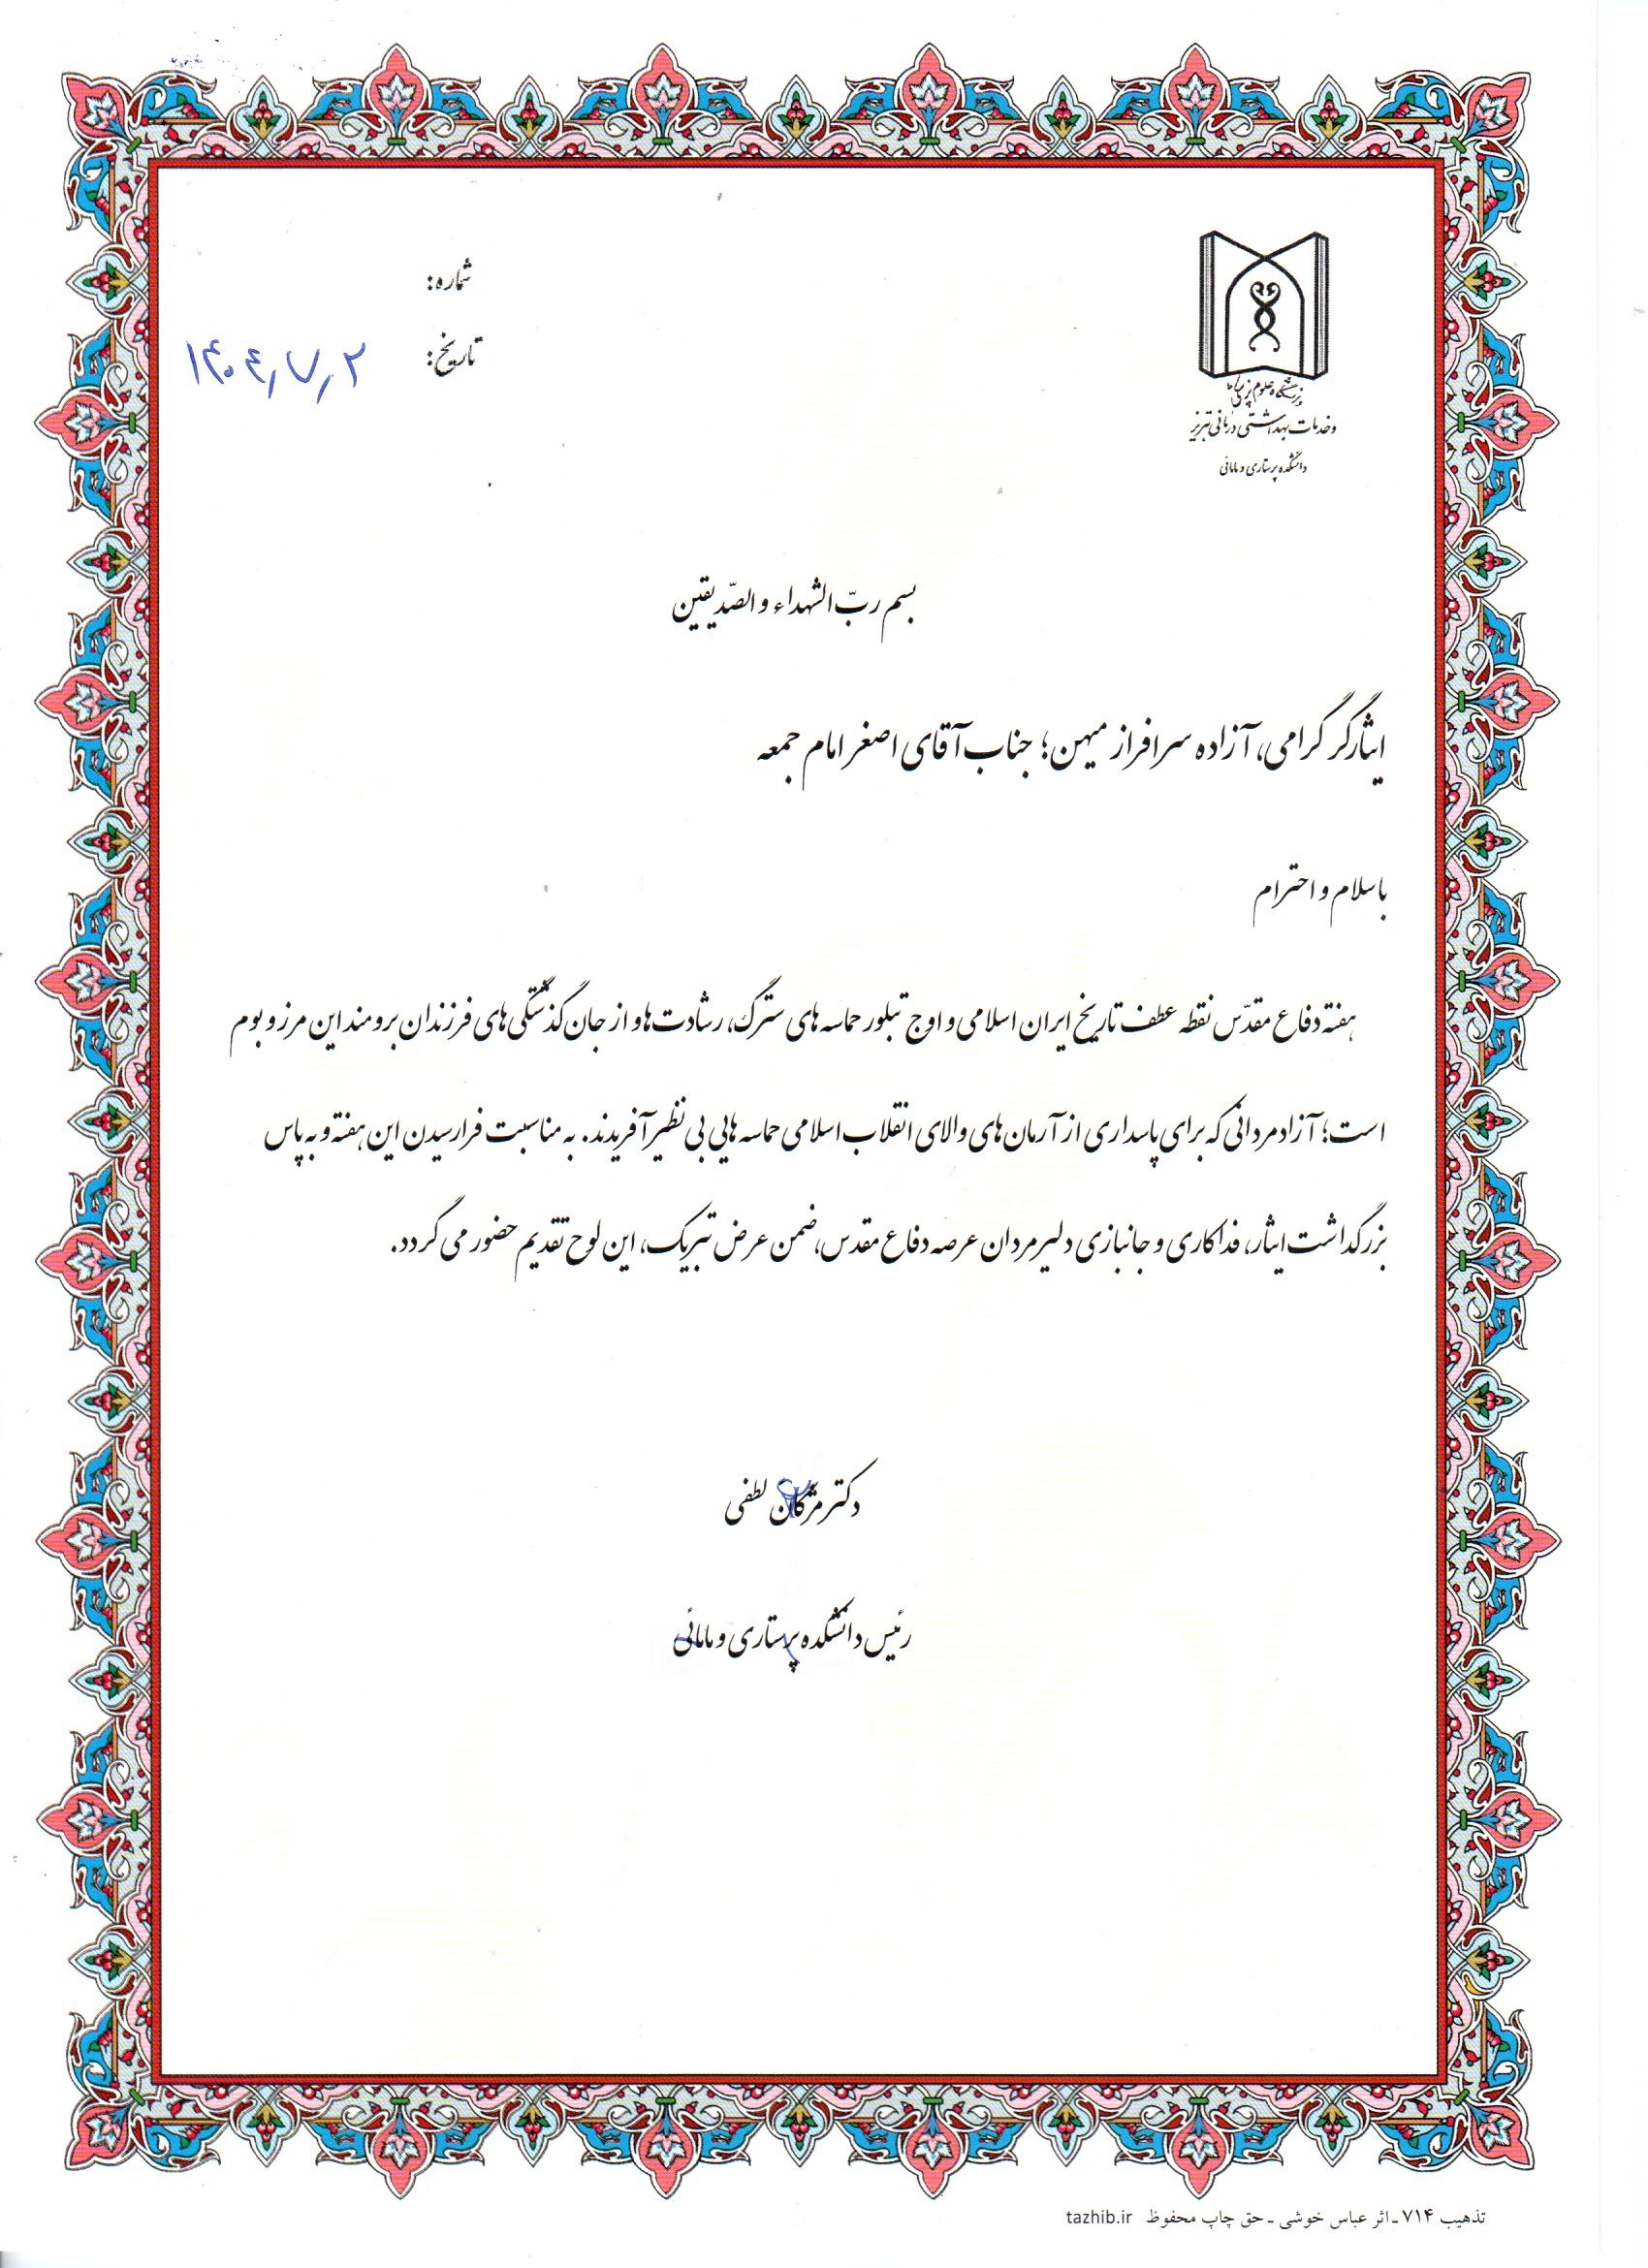 شماره:
تاریخ: ۱۴۰۴/۷/۲
دانشگاه علوم پزشکی
و خدمات بهداشتی درمانی تبریز
دانشکده پرستاری و مامائی
بسم ربّ الشهداء و الصّدیقین
ایثارگر گرامی، آزاده سرافراز میهن؛ جناب آقای اصغر امام جمعه
با سلام و احترام
هفته دفاع مقدّس نقطه عطف تاریخ ایران اسلامی و اوج تبلور حماسه های سترگ، رشادت ها و از جان گذشتگی های فرزندان برومند این مرز و بوم
است؛ آزادمردانی که برای پاسداری از آرمان های والای انقلاب اسلامی حماسه هایی بی نظیر آفریدند. به مناسبت فرارسیدن این هفته و به پاس
بزرگداشت ایثار، فداکاری و جانبازی دلیرمردان عرصه دفاع مقدس، ضمن عرض تبریک، این لوح تقدیم حضور می گردد.
دکتر مژگان لطفی
رئیس دانشکده پرستاری و مامائی
تذهیب ۷۱۴ - اثر عباس خوشی - حق چاپ محفوظ tazhib.ir